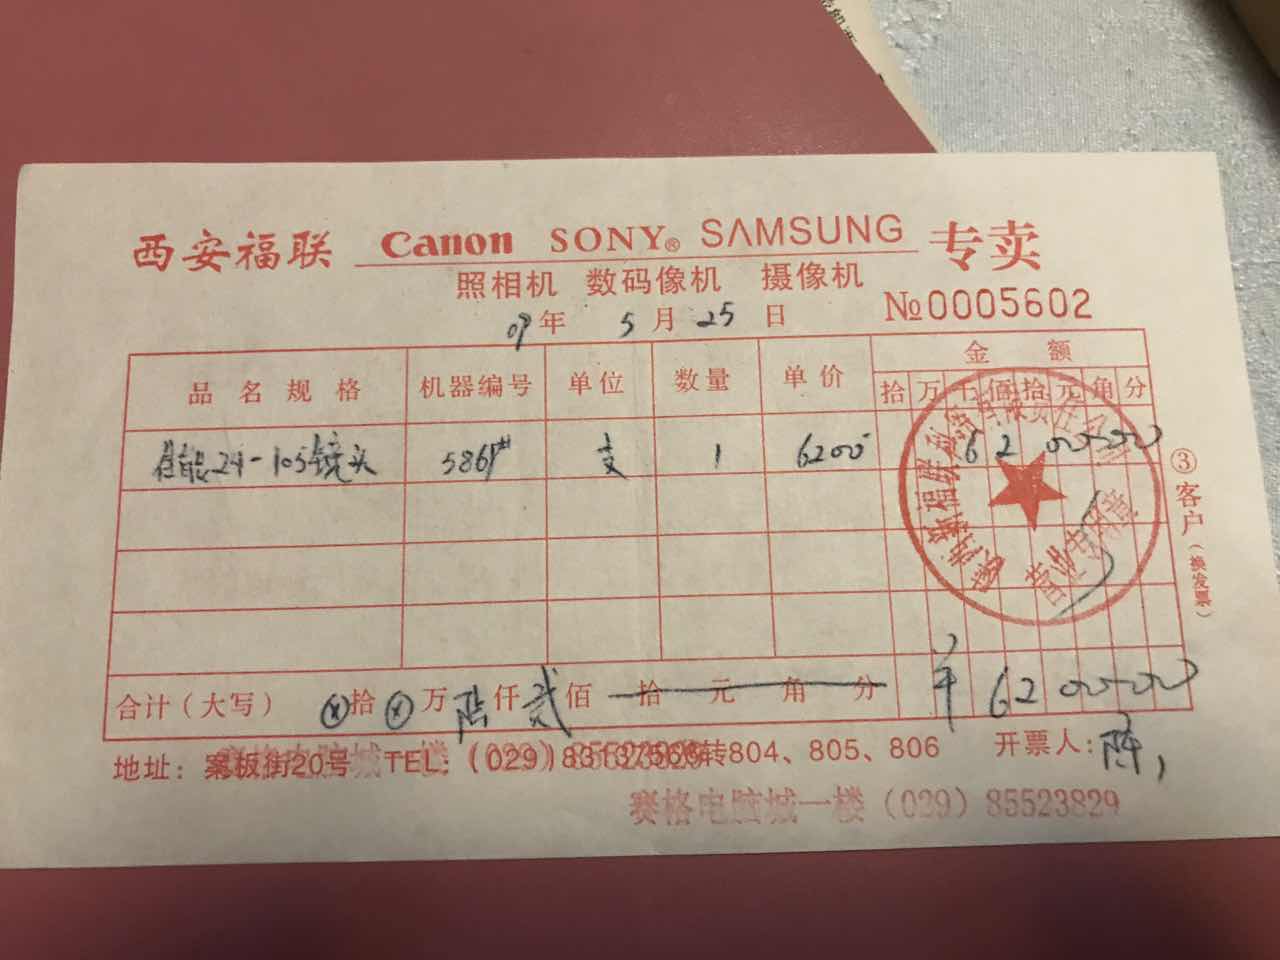 西安福联 Canon SONY® SAMSUNG 专卖
照相机 数码像机 摄像机
07年 5月25日 №0005602
品名规格 机器编号 单位 数量 单价 金额
拾 万 千 佰 拾 元 角 分
佳能24-105镜头 5861# 支 1 6200 620000
合计(大写) ⊗拾⊗万陆仟贰佰拾元角分 ¥620000
③客户(换发票)
营业专用章
地址:案板街20号 TEL:(029)83137566转804、805、806 开票人:陈
赛格电脑城一楼(029)85523829